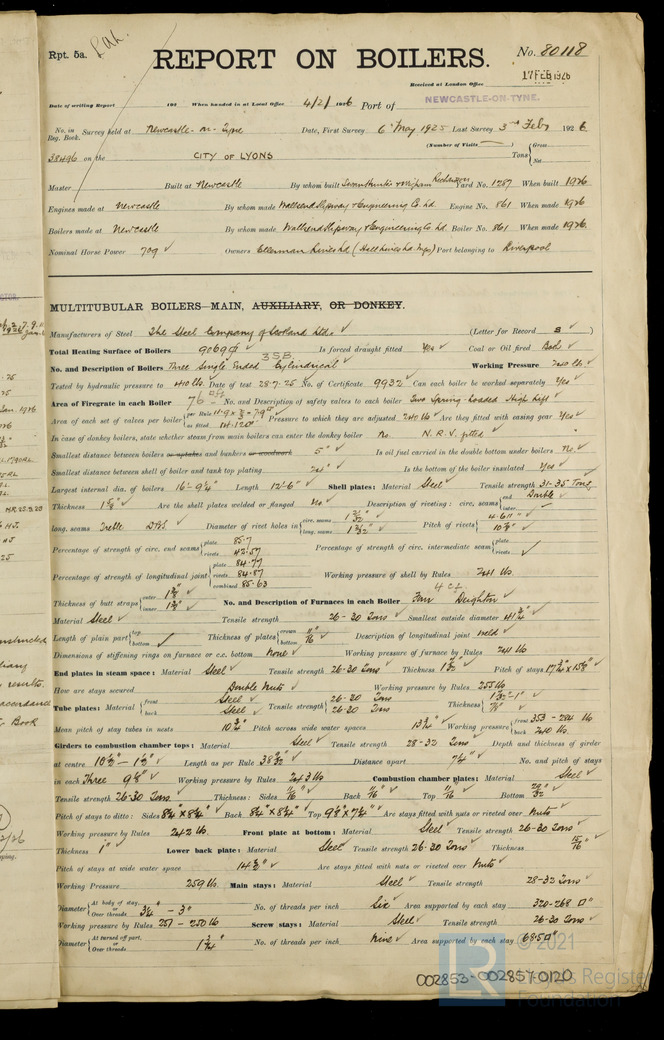 Rpt. 5a.
REPORT ON BOILERS.
No. 80118
Received at London Office
17 FEB 1926
Date of writing Report 192 When handed in at Local Office 4/2/1926 Port of NEWCASTLE-ON-TYNE.
No. in Reg. Book. Survey held at Newcastle-on-Tyne Date, First Survey 6th May 1925 Last Survey 3rd Feby 1926
(Number of Visits )
38496 on the CITY OF LYONS Tons { Gross Net
Master Built at Newcastle By whom built Swan Hunter & Wigham Richardson Yard No. 1287 When built 1926
Engines made at Newcastle By whom made Wallsend Slipway & Engineering Co. Ld Engine No. 861 When made 1926
Boilers made at Newcastle By whom made Wallsend Slipway & Engineering Co. Ld Boiler No. 861 When made 1926
Nominal Horse Power 709 Owners Ellerman Lines Ld (Hall Lines Ld Mgrs) Port belonging to Liverpool
MULTITUBULAR BOILERS—MAIN, AUXILIARY, OR DONKEY.
Manufacturers of Steel The Steel Company of Scotland Ltd. (Letter for Record S )
Total Heating Surface of Boilers 9069 Is forced draught fitted Yes Coal or Oil fired
3 S.B.
No. and Description of Boilers Three Single Ended Cylindrical Working Pressure 240 lb.
Tested by hydraulic pressure to 410 lb. Date of test 28.7.25 No. of Certificate 9932 Can each boiler be worked separately Yes
Area of Firegrate in each Boiler 76 No. and Description of safety valves to each boiler Two Spring-loaded High lift
Area of each set of valves per boiler { per Rule as fitted Pressure to which they are adjusted 240 lb Are they fitted with easing gear Yes
In case of donkey boilers, state whether steam from main boilers can enter the donkey boiler No. N.R.V. fitted
Smallest distance between boilers or uptakes and bunkers or woodwork 5" Is oil fuel carried in the double bottom under boilers No.
Smallest distance between shell of boiler and tank top plating Is the bottom of the boiler insulated Yes
Largest internal dia. of boilers 16'-9¼" Length 12'-6" Shell plates: Material Steel Tensile strength 31-35 Tons
Thickness Are the shell plates welded or flanged No Description of riveting: circ. seams { end Double inter.
long. seams Treble D.B.S. Diameter of rivet holes in { circ. seams long. seams Pitch of rivets { 4.611"
Percentage of strength of circ. end seams { plate 85.7 rivets 42.57 Percentage of strength of circ. intermediate seam { plate rivets
Percentage of strength of longitudinal joint { plate 84.77 rivets 84.87 combined 85.63 Working pressure of shell by Rules 241 lb
Thickness of butt straps { outer inner No. and Description of Furnaces in each Boiler Four Deighton
Material Steel Tensile strength 26-30 Tons Smallest outside diameter 41¾"
Length of plain part { top bottom Thickness of plates { crown bottom Description of longitudinal joint weld
Dimensions of stiffening rings on furnace or c.c. bottom None Working pressure of furnace by Rules 241 lb
End plates in steam space: Material Steel Tensile strength 26-30 Tons Thickness Pitch of stays
How are stays secured Double Nuts Working pressure by Rules 255 lb
Tube plates: Material { front Steel back Steel Tensile strength { 26-30 Tons 26-30 Tons Thickness
Mean pitch of stay tubes in nests 10¾" Pitch across wide water spaces Working pressure { front 353 - 284 lb back 240 lb.
Girders to combustion chamber tops: Material Steel Tensile strength 28-32 Tons Depth and thickness of girder
at centre Length as per Rule Distance apart 7¼" No. and pitch of stays
in each Three Working pressure by Rules 243 lb Combustion chamber plates: Material Steel
Tensile strength 26-30 Tons Thickness: Sides 11/16" Back 11/16" Top 11/16" Bottom
Pitch of stays to ditto: Sides Back Top Are stays fitted with nuts or riveted over Nuts
Working pressure by Rules 242 lb. Front plate at bottom: Material Steel Tensile strength 26-30 Tons
Thickness 1" Lower back plate: Material Steel Tensile strength 26-30 Tons Thickness 15/16"
Pitch of stays at wide water space Are stays fitted with nuts or riveted over Nuts
Working Pressure 259 lb. Main stays: Material Steel Tensile strength 28-32 Tons
Diameter { At body of stay, or Over threads 3¼" - 3" No. of threads per inch Six Area supported by each stay 320-268
Working pressure by Rules 251 - 250 lb Screw stays: Material Steel Tensile strength 26-30 Tons
Diameter { At turned off part, or Over threads 1¾" No. of threads per inch Nine Area supported by each stay
002853-002857-0120
LR © 2021
Lloyd's Register
Foundation